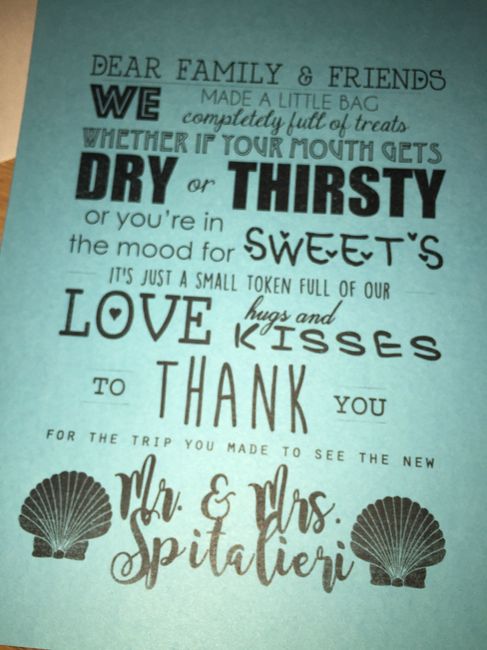 DEAR FAMILY & FRIENDS
WE MADE A LITTLE BAG
completely full of treats
WHETHER IF YOUR MOUTH GETS
DRY or THIRSTY
or you're in
the mood for SWEET'S
IT'S JUST A SMALL TOKEN FULL OF OUR
LOVE hugs and
KISSES
TO THANK YOU
FOR THE TRIP YOU MADE TO SEE THE NEW
Mr. & Mrs.
Spitalieri